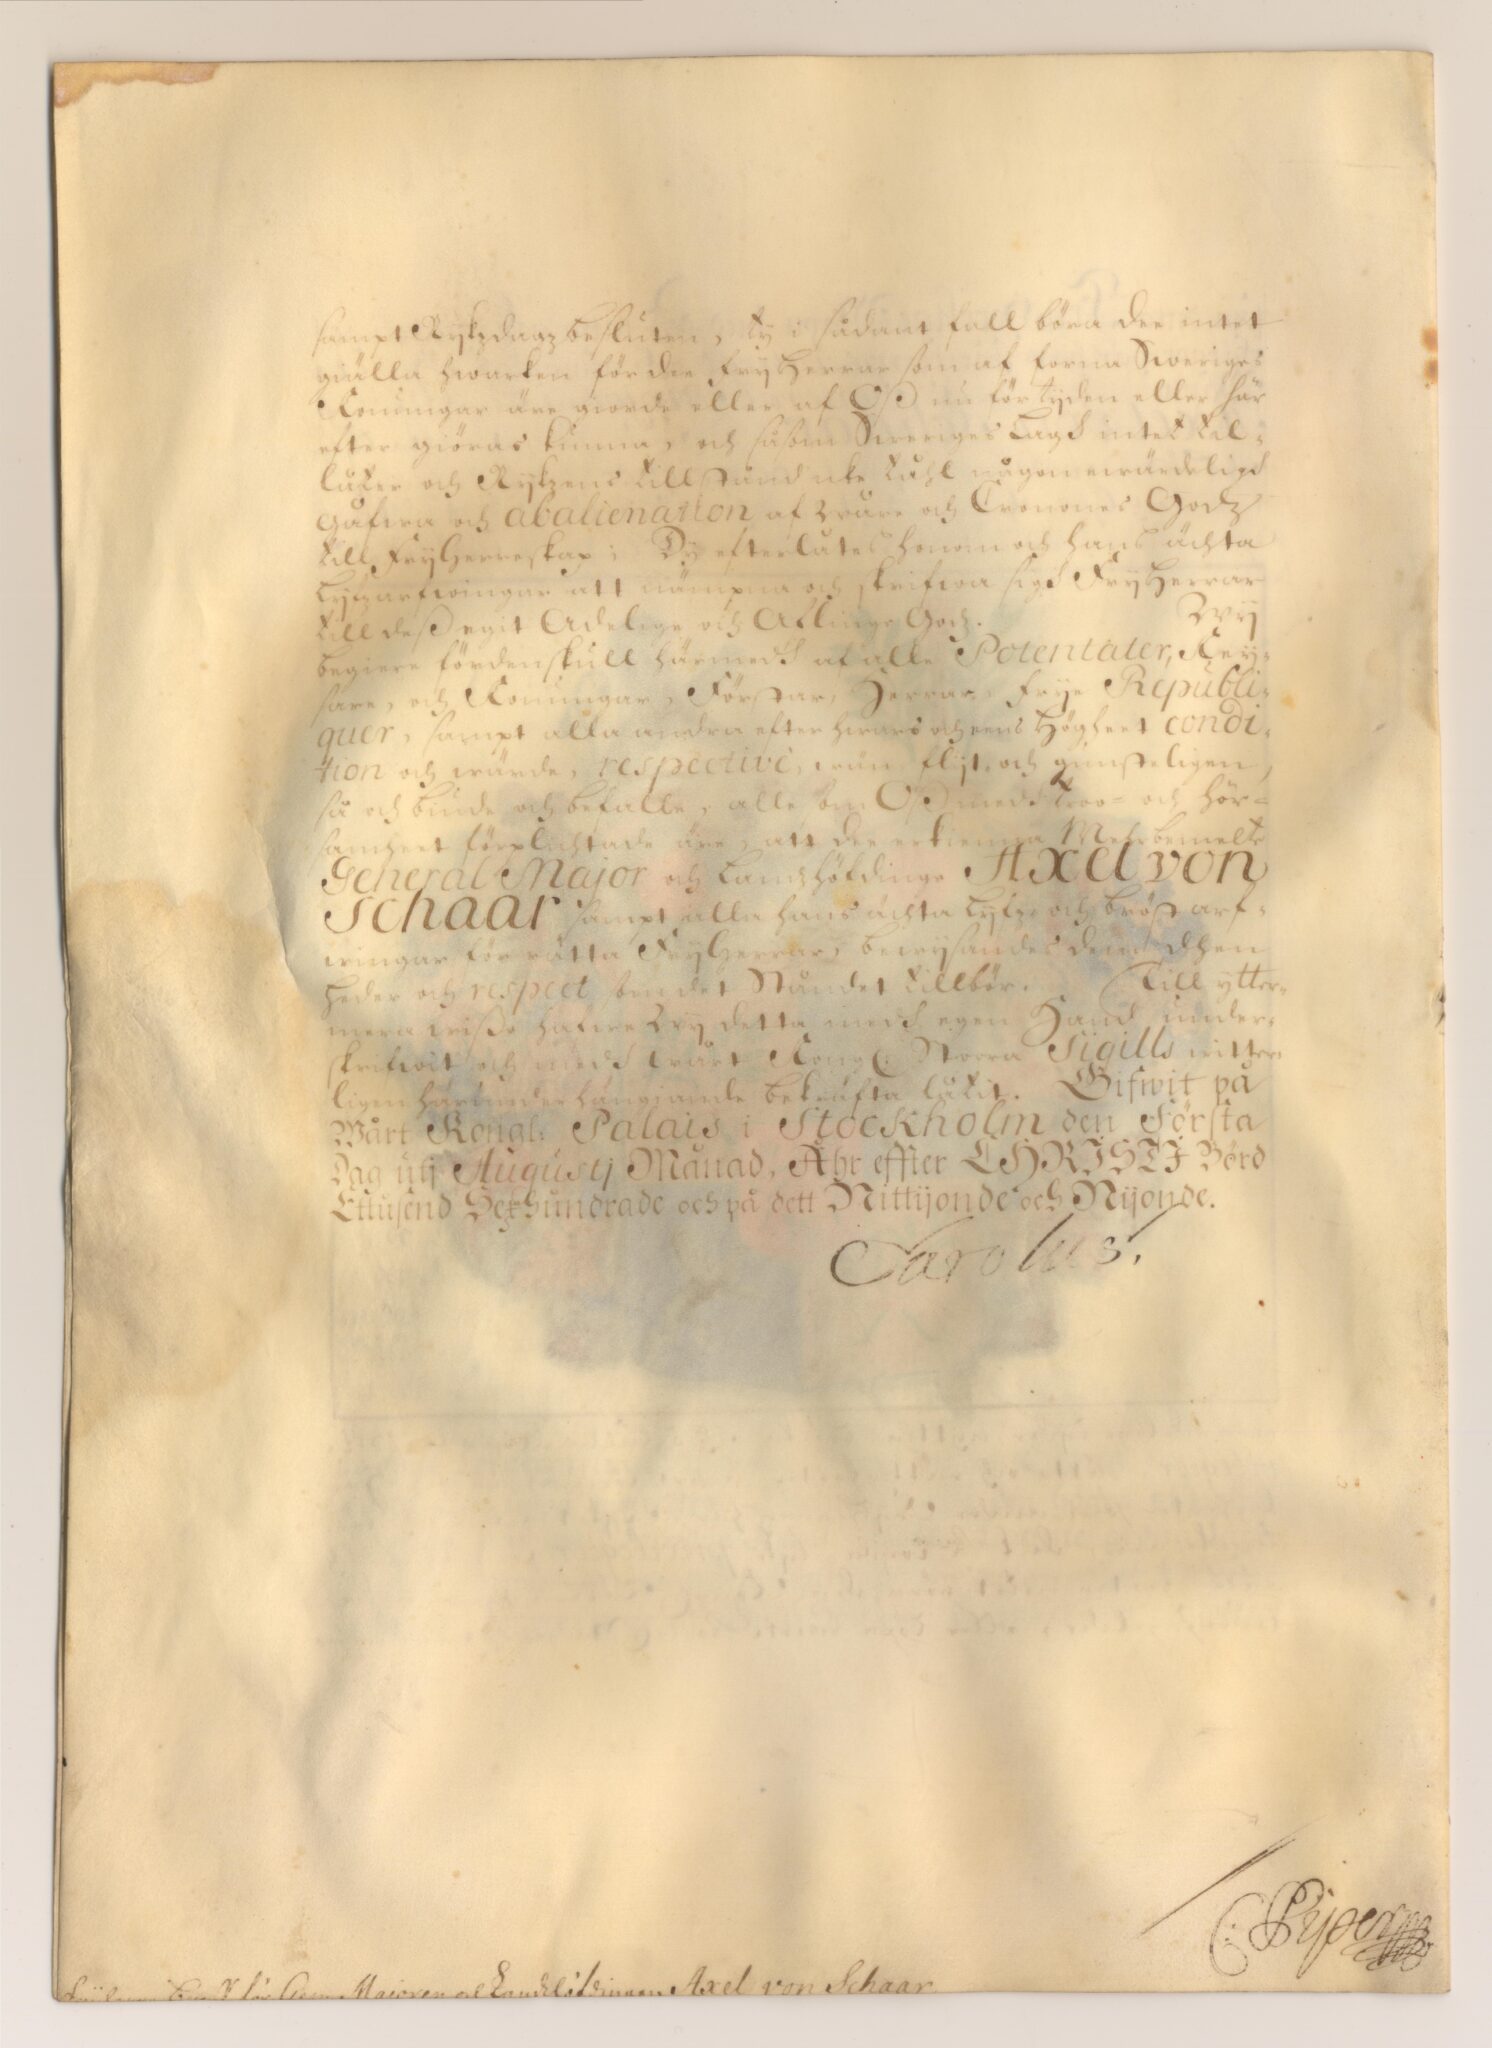 sampt Rykzdagz besluten, ty i sådant fall böra dee intet
giälla hwarken för dee FryHerrar som af forna Sweriges
Konungar äre giorde eller af Oß nu för tyden eller här
efter giöras kunna, och såsom Sweriges Lagh intet till-
låter och Rykzens tillstånd icke tåhl någon
Gåfwa och abalienation af Wåre och Cronones Godz
till FryHerreskap; Ty efterlåtes honom och hans ächta
Lyfzarfwingar att nämpna och skrifwa sigh FryHerrar
till deß egit Adelige och Aflinge Godz. Wij
begiere fördenskull härmedh af alle Potentater, Key-
sare, och Konungar, Förstar, Herrar, Frye Republi-
quer, sampt alla andra efter hwars och eens Högheet condi-
tion och wärde, respective, wän- flijt- och gunsteligen,
så och biude och befalle, alle som Oß medh troo- och hör-
samheet förplichtade äre, att dee erkienna Mehrbemelte
General Major och Landzhöfdinge Axel von
Schaar sampt alla hans ächta Lyfz- och bröst arf-
wingar för rätta FryHerrar, bewysandes dem dhen
heder och respect som det Ståndet tillbör. Till ytter-
mera wiße hafwe Wy detta medh egen Hand under-
skrifwit och medh Wårt Kongl. Stoora Sigills witter-
ligen härunder hängiande bekräfta låtit. Gifwit på
Wårt Kongl: Palais i Stockholm den Första
Dag utj Augustj Månad, Åhr effter CHRISTI Börd
Ettusend Sexhundrade och på dett Nittijonde och Nijonde.
Carolus.
C: Piper
för Gen: Majoren och Landzhöfdingen Axel von Schaar